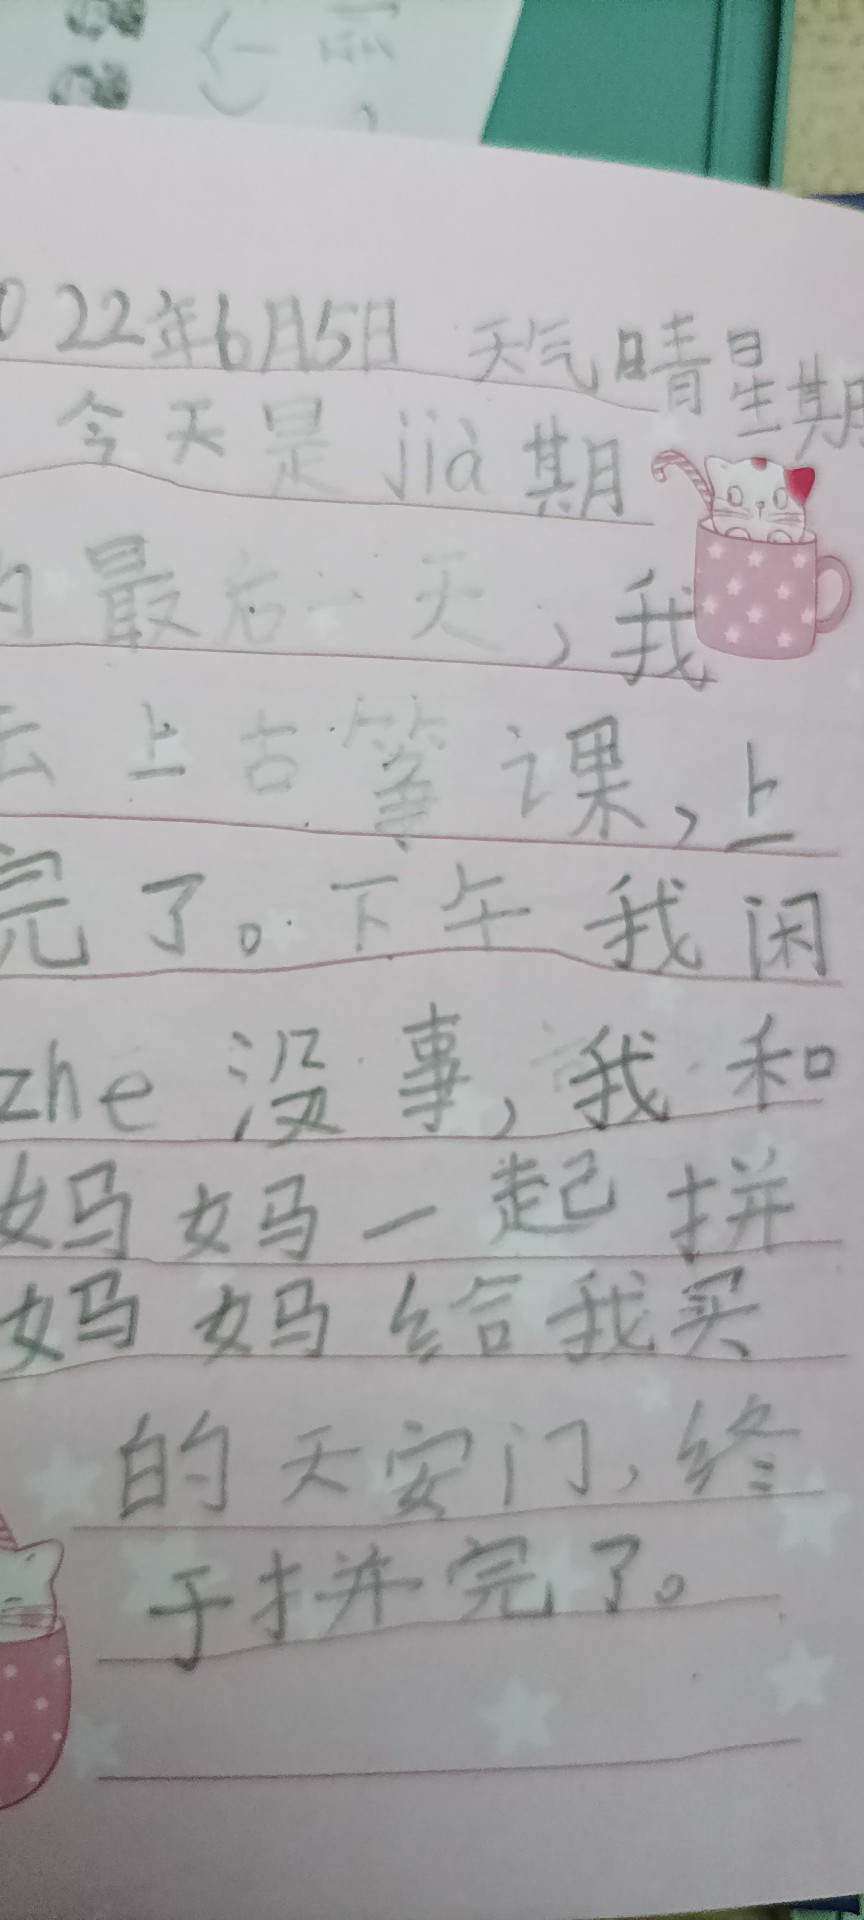 022年6月5日 天气晴 星期
今天是jià期
的最后一天,我
去上古筝课,上
完了。下午我闲
zhe没事,我和
妈妈一起拼
妈妈给我买
的天安门,终
于拼完了。